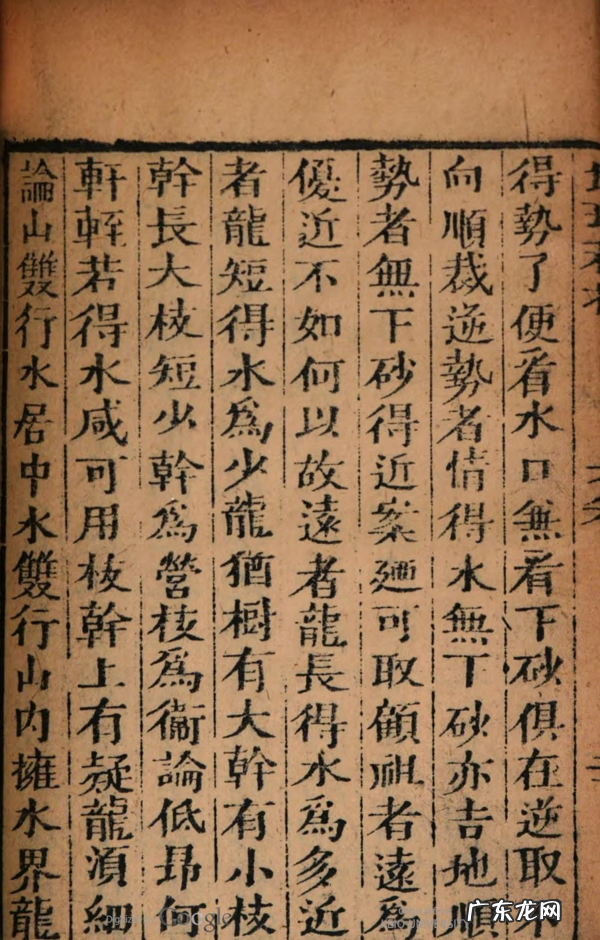 得勢了便看水口無看下砂俱在逆取不
向順裁逆勢者情得水無下砂亦吉地順
勢者無下砂得近案廻可取顧祖者遠為
優近不如何以故遠者龍長得水為多近
者龍短得水為少龍猶樹有大幹有小枝
幹長大枝短少幹為營枝為衞論低昻何
軒輊若得水咸可用枝幹上有疑龍湏細
論山雙行水居中水雙行山內擁水界龍
Google
广东龙网